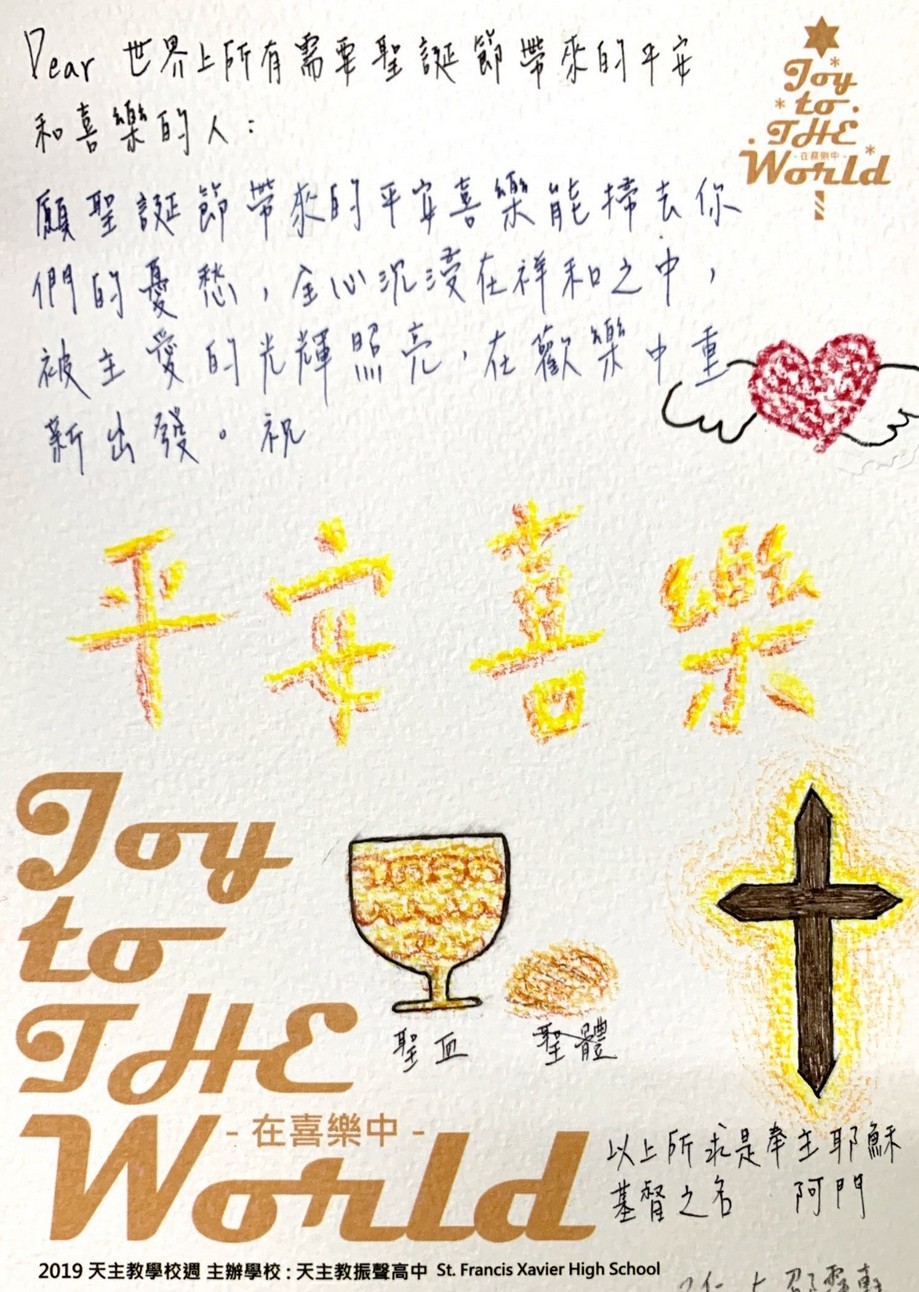 Dear 世界上所有需要聖誕節帶來的平安
和喜樂的人：
Joy
to
THE
- 在喜樂中 -
World
願聖誕節帶來的平安喜樂能掃去你
們的憂愁，全心沉浸在祥和之中，
被主愛的光輝照亮，在歡樂中重
新出發。祝
平安喜樂
Joy
to
THE
- 在喜樂中 -
World
聖血 聖體
以上所求是奉主耶穌
基督之名 阿門
2019 天主教學校週 主辦學校 : 天主教振聲高中 St. Francis Xavier High School